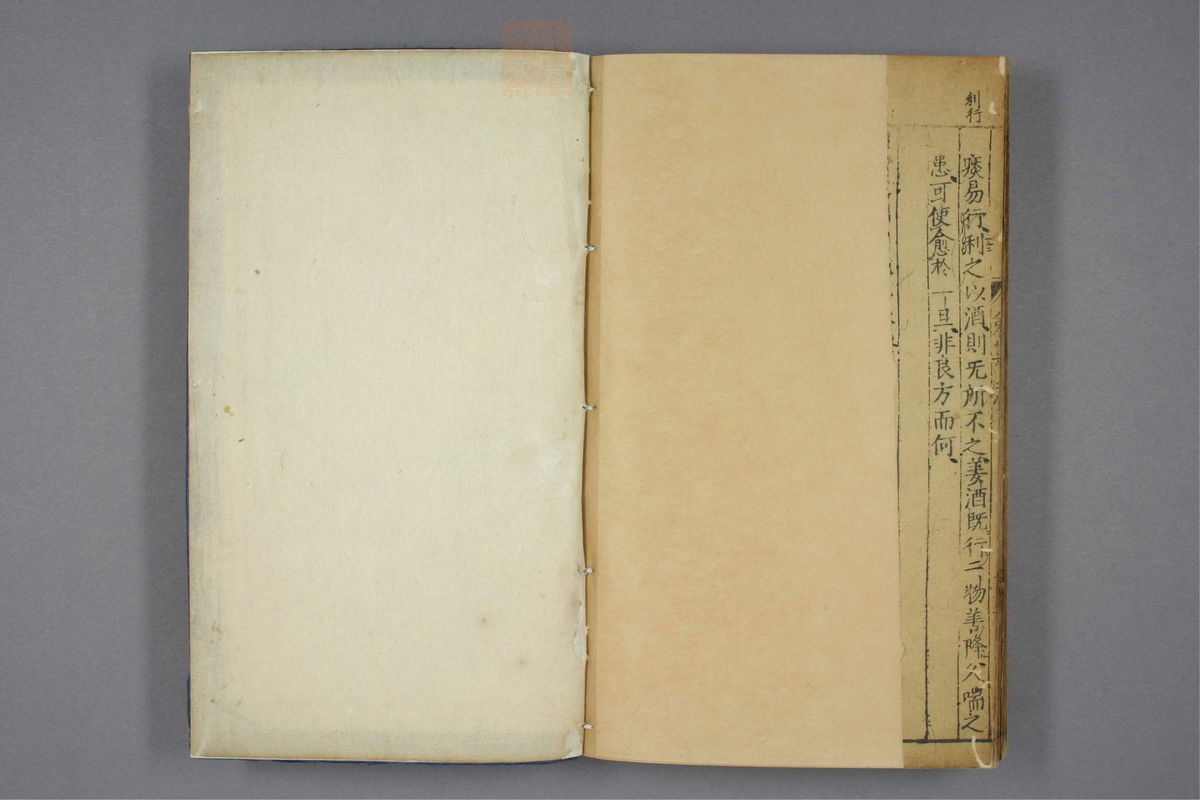 利行
痰易行痢之以酒則旡所不之姜酒既行二物善降久喘之
患可使愈於一旦非良方而何